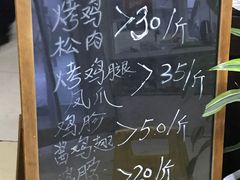 烤鸡 >30/斤
松肉
烤鸡腿 >35/斤
凤爪
鸡胗 >50/斤
酱鸡翅
>20/斤